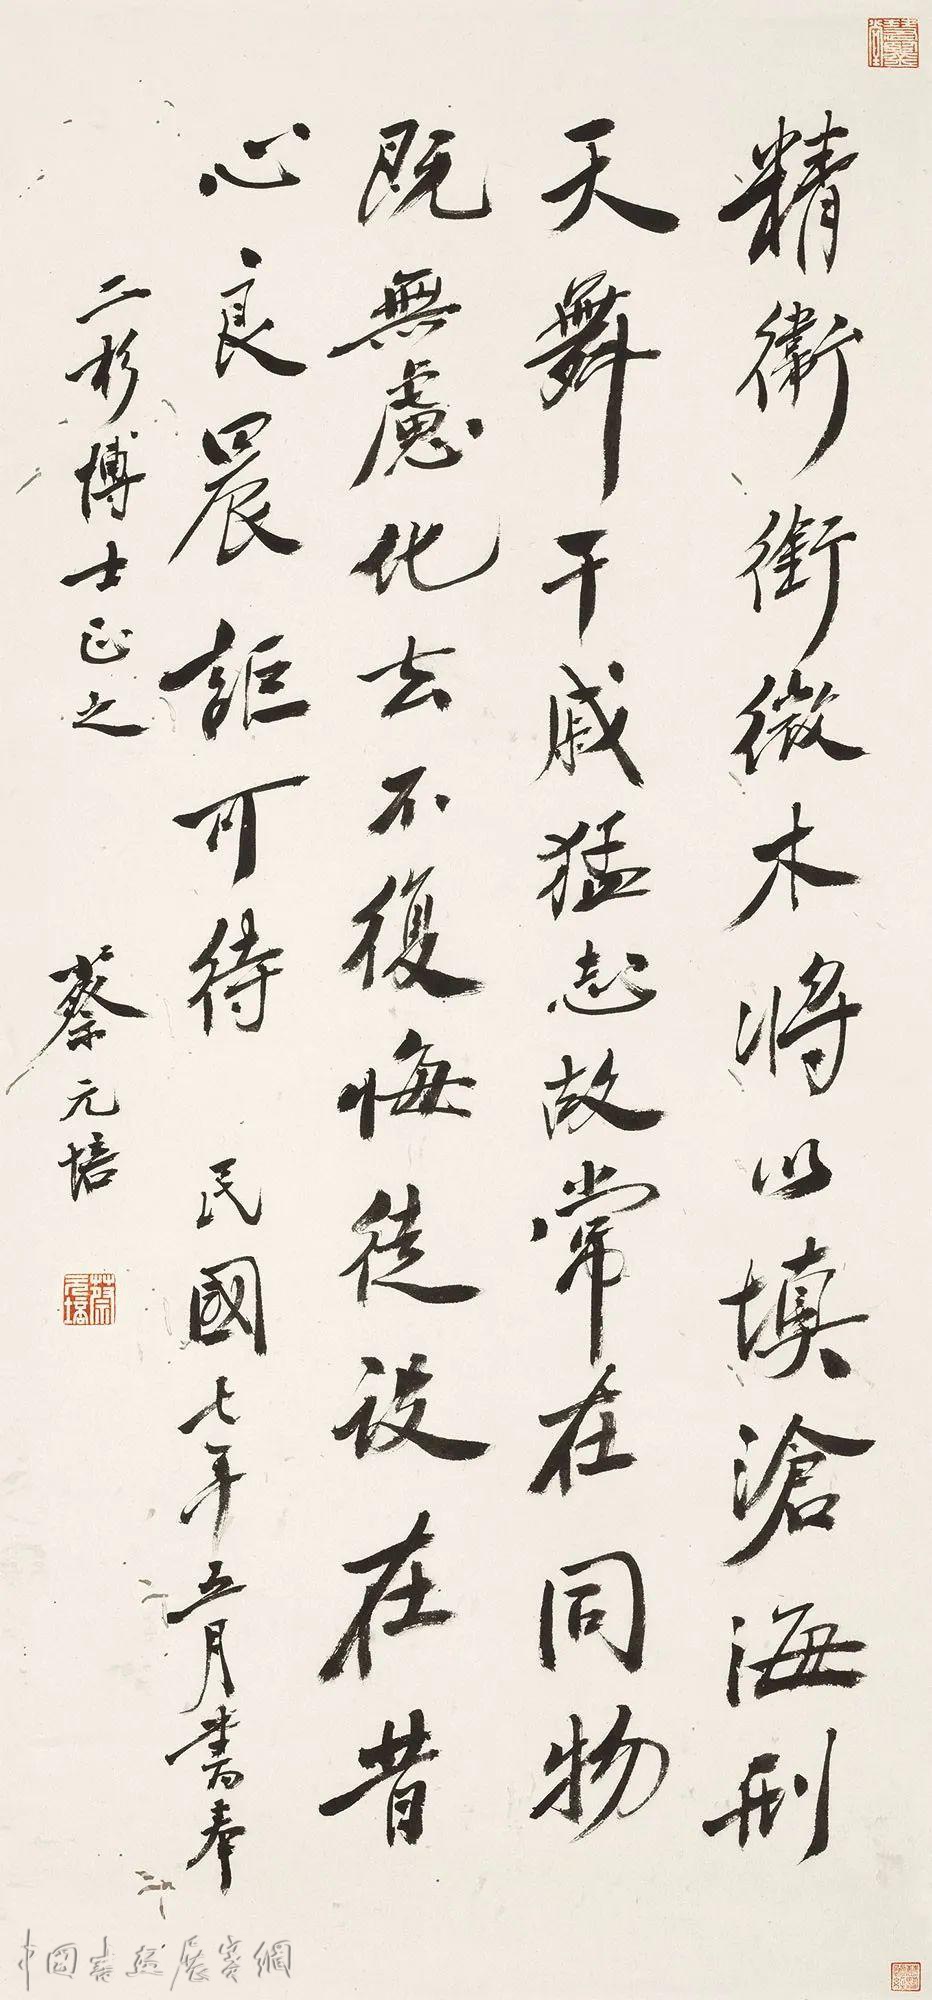 精衛銜微木將以填滄海刑
天舞干戚猛志故常在同物
既無慮化去不復悔徒設在昔
心良晨詎可待 民國七年五月書奉
二杉博士正之 蔡元培
蔡元培
中國書畫展賽網